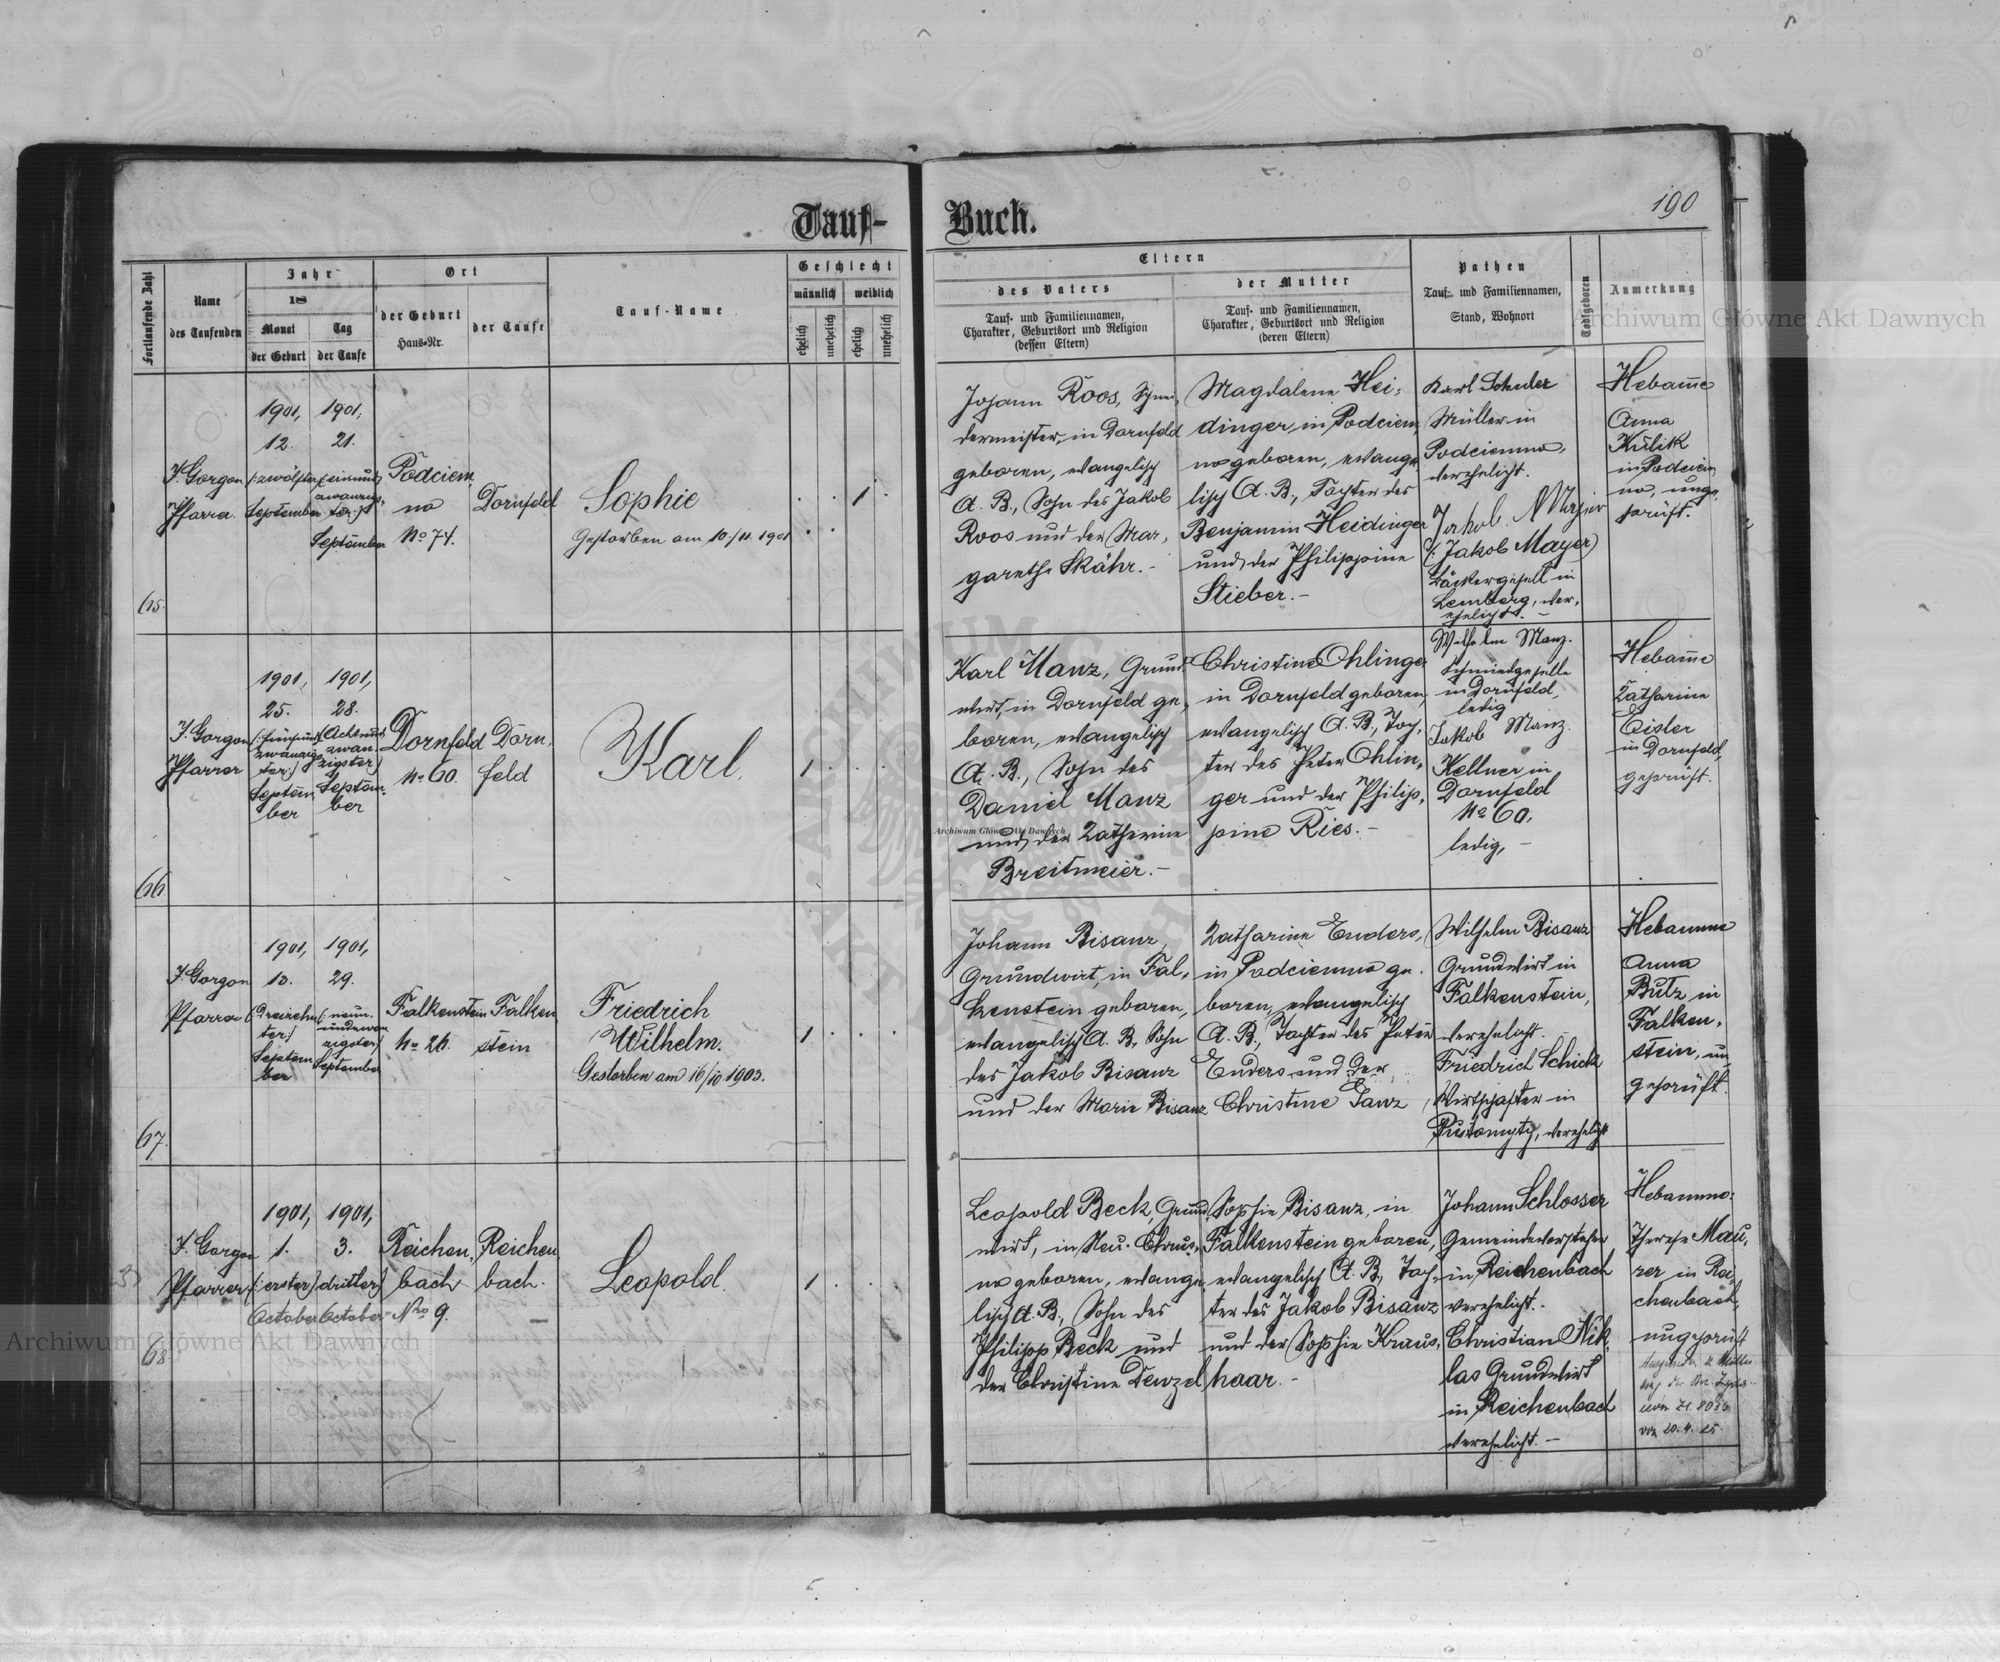 190
Tauf-Buch.
Fortlaufende Zahl
Name
des Taufenden
Jahr
18
Monat
der Geburt
Tag
der Taufe
Ort
der Geburt
Haus-Nr.
der Taufe
Tauf-Name
Geschlecht
männlich
weiblich
ehelich
unehelich
ehelich
unehelich
Eltern
des Vaters
Tauf- und Familiennamen,
Charakter, Geburtsort und Religion
(dessen Eltern)
der Mutter
Tauf- und Familiennamen,
Charakter, Geburtsort und Religion
(deren Eltern)
Pathen
Tauf- und Familiennamen,
Stand, Wohnort
Todtgeboren
Anmerkung
65.
F. Gorgon
Pfarrer
1901,
12.
(:zwölfter
September
1901,
21.
(:einund
zwanzigs-
ter:)
September
Podciem
no
No 74.
Dornfeld
Sophie
Gestorben am 10./11. 1901
1
Johann Roos, Schnei-
dermeister, in Dornfeld
geboren, evangelisch
A. B., Sohn des Jakob
Roos und der Mar-
garethe Skähr.-
Magdalene Hei-
dinger, in Podciem
no geboren, evange-
lisch A. B., Tochter des
Benjamin Heidinger
und der Philippine
Stieber.-
Karl Schuler
Müller in
Podciemno,
verehelicht.
Jakob Majer
(: Jakob Mayer)
Bäckergesell in
Lemberg, ver-
ehelicht.-
Hebamme
Anna
Kulik
in Podciem
no, unge-
prüft.
66
F. Gorgon
Pfarrer
1901,
25.
(:fünfund
zwanzigs
ter:)
Septem
ber
1901,
28.
(Achtund
zwan
zigster)
Septem-
ber
Dornfeld
No 60.
Dorn-
feld
Karl.
1
Karl Manz, Grund-
wirt, in Dornfeld ge-
boren, evangelisch
A. B., Sohn des
Daniel Manz
und der Katharine
Breitmeier.-
Christine Ohlinger
in Dornfeld geboren,
evangelisch A. B., Toch-
ter des Peter Ohlin-
ger und der Philip-
pine Ries.-
Wilhelm Manz.
Schmiedgeselle
in Dornfeld,
ledig
Jakob Manz.
Kellner in
Dornfeld
No 60.
ledig,-
Hebamme
Katharine
Eisler
in Dornfeld,
geprüft.
67.
F. Gorgon
Pfarrer
1901,
13.
(:Dreizehn
ter:)
Septem
ber
1901,
29.
(:neun-
undzwan
zigster)
September
Falkenstein
No 26.
Falken
stein
Friedrich
Wilhelm.
Gestorben am 16/10 1903.
1
Johann Bisanz,
Grundwirt, in Fal-
kenstein geboren,
evangelisch A. B., Sohn
des Jakob Bisanz
und der Marie Bisanz
Katharine Enders,
in Podciemno ge-
boren, evangelisch
A. B., Tochter des Peter
Enders und der
Christine Janz
Wilhelm Bisanz
Grundwirt in
Falkenstein,
verehelicht.
Friedrich Schick
Wirtschafter in
Pustomyty, verehelicht
Hebamme
Anna
Butz in
Falken-
stein, un
geprüft.
68.
F. Gorgon
Pfarrer
1901,
1.
(:erster)
October
1901,
3.
dritter)
October
Reichen-
bach
Nro 9.
Reichen
bach.
Leopold.
1
Leopold Beck, Grund
wirt, in Neu-Chrus-
no geboren, evange-
lisch A. B., Sohn des
Philipp Beck und
der Christine Denzel
Sophie Bisanz, in
Falkenstein geboren,
evangelisch A. B., Toch-
ter des Jakob Bisanz
und der Sophie Kraus-
haar.-
Johann Schlosser
Gemeindevorsteher
in Reichenbach
verehelicht.-
Christian Nik-
las Grundwirt
in Reichenbach
verehelicht.-
Hebamme:
Therese Mau-
rer in Rei-
chenbach,
ungeprüft
Zl. 8036
von 20. 4. 25.
Archiwum Główne Akt Dawnych
Archiwum Główne Akt Dawnych
Archiwum Główne Akt Dawnych